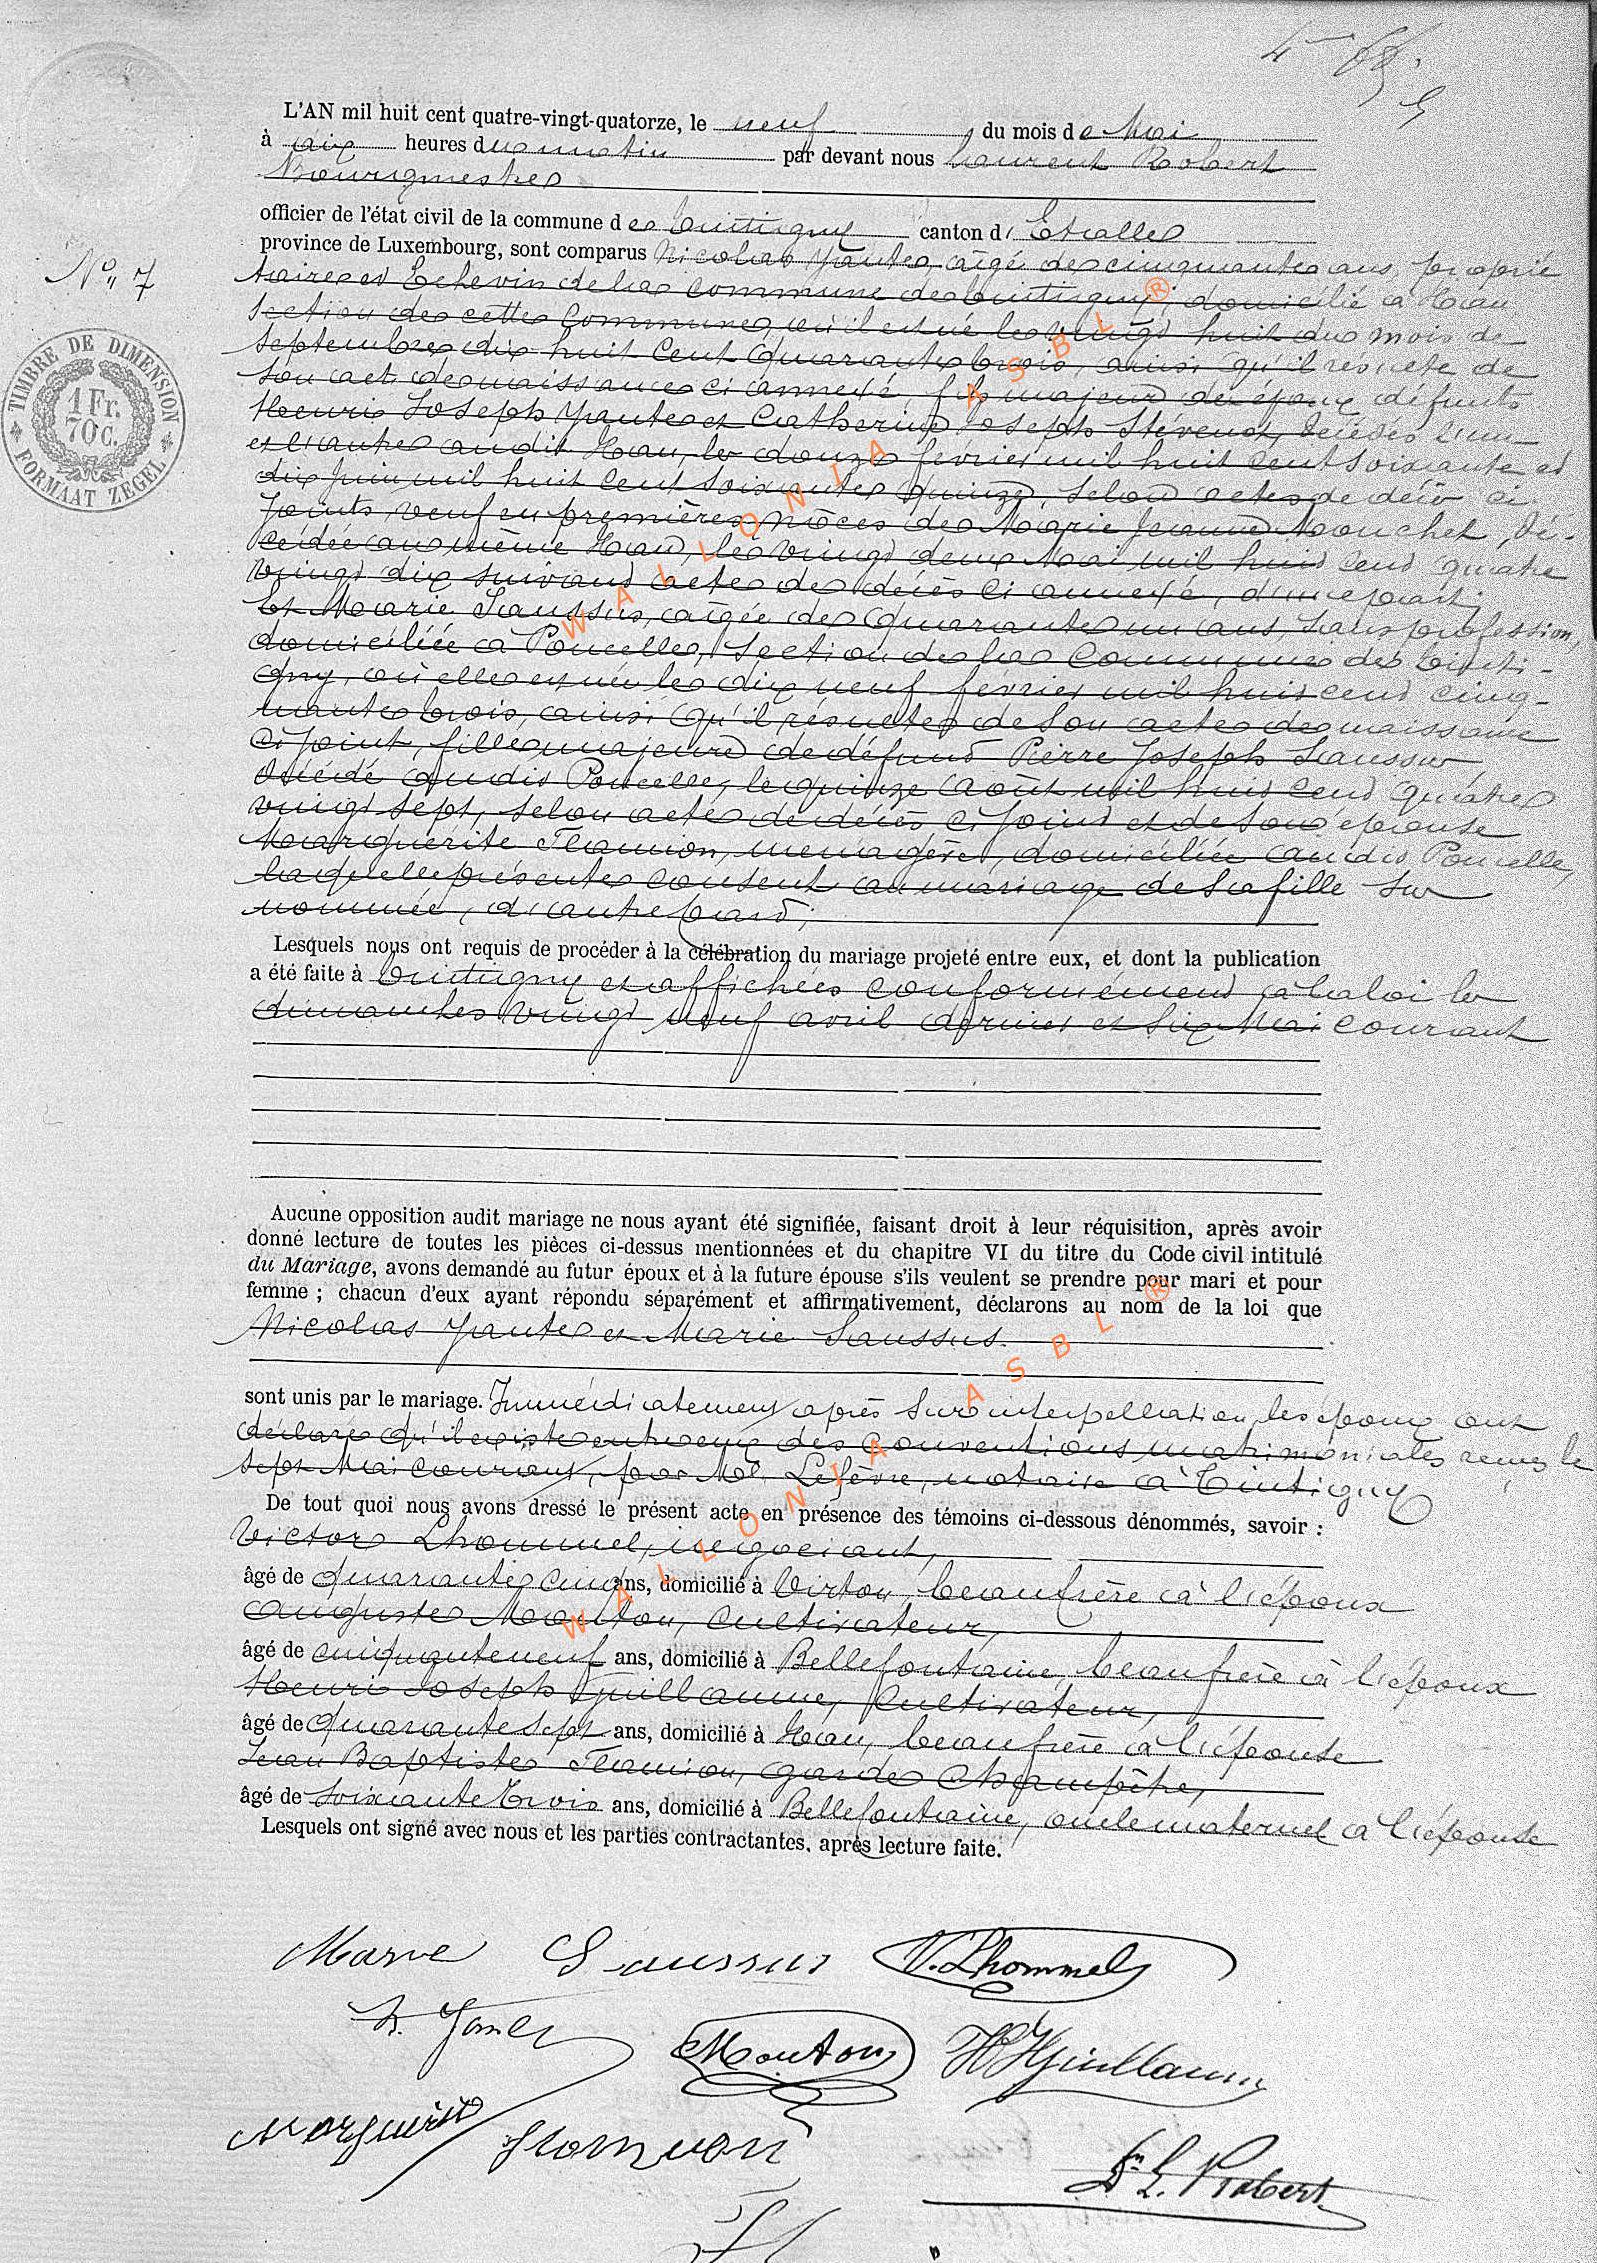 L'AN mil huit cent quatre-vingt-quatorze, le neuf du mois de Mai
à dix heures du matin par devant nous Laurent Robert
Bourgmestre
officier de l'état civil de la commune de Tintigny canton d'Etalle
province de Luxembourg, sont comparus Nicolas Yante, âgé de cinquante ans, proprié
N° 7
taire et Echevin de la commune de Tintigny, domicilié à Han
section de cette commune où il est né le vingt huit du mois de
Septembre dix huit cent quarante trois, ainsi qu'il résulte de
TIMBRE DE DIMENSION
1 Fr. 70 c.
FORMAAT ZEGEL
son acte de naissance ci annexé, fils majeur des époux défunts
Henri Joseph Yante et Catherine Joseph Stévenot, décédés l'un
et l'autre audit Han, le douze février mil huit cent soixante et
dix Juin mil huit cent soixante quinze, selon actes de décès ci
joints, veuf en premières nôces de Marie Jeanne Mouchet, dé-
cédée au même Han, le vingt deux Mai mil huit cent quatre
vingt dix suivant acte de décès ci annexé, d'une part;
Et Marie Saussus, âgée de quarante un ans, sans profession,
domiciliée à Poncelle, Section de la commune de Tinti-
gny, où elle est née le dix neuf février mil huit cent cinq-
uante trois, ainsi qu'il résulte de son acte de naissance
ci joint, fille majeure de défunt Pierre Joseph Saussus,
décédé audit Poncelle, le quinze août mil huit cent quatre
vingt sept, selon acte de décès ci joint et de son épouse
Marguerite Flamion, ménagère, domiciliée audit Poncelle,
laquelle présente consent au mariage de sa fille sus
nommée, d'autre part;
Lesquels nous ont requis de procéder à la célébration du mariage projeté entre eux, et dont la publication
a été faite à Tintigny et affichées conformément à la loi les
dimanches vingt neuf avril dernier et six Mai courant
Aucune opposition audit mariage ne nous ayant été signifiée, faisant droit à leur réquisition, après avoir
donné lecture de toutes les pièces ci-dessus mentionnées et du chapitre VI du titre du Code civil intitulé
du Mariage, avons demandé au futur époux et à la future épouse s'ils veulent se prendre pour mari et pour
femme ; chacun d'eux ayant répondu séparément et affirmativement, déclarons au nom de la loi que
Nicolas Yante et Marie Saussus.
sont unis par le mariage. Immédiatement après sur interpellation, les époux ont
déclaré qu'il existe entre eux des conventions matrimoniales reçues le
sept Mai courant, par Me. Lefèvre, notaire à Tintigny
De tout quoi nous avons dressé le présent acte en présence des témoins ci-dessous dénommés, savoir :
Victor Lhommel, négociant,
âgé de quarante cinq ans, domicilié à Virton, beaufrère à l'époux
Auguste Mouton, Cultivateur,
âgé de cinquante neuf ans, domicilié à Bellefontaine, beaufrère à l'époux
Henri Joseph Guillaume, Cultivateur,
âgé de quarante sept ans, domicilié à Han, beaufrère à l'épouse
Jean Baptiste Flamion, garde champêtre,
âgé de soixante trois ans, domicilié à Bellefontaine, oncle maternel à l'épouse
Lesquels ont signé avec nous et les parties contractantes, après lecture faite.
Marie Saussus V. Lhommel
N. Yante Mouton HJ Guillaume
Marguerite Flamion
Dr L. Robert
WALLONIA ASBL ®
WALLONIA ASBL ®